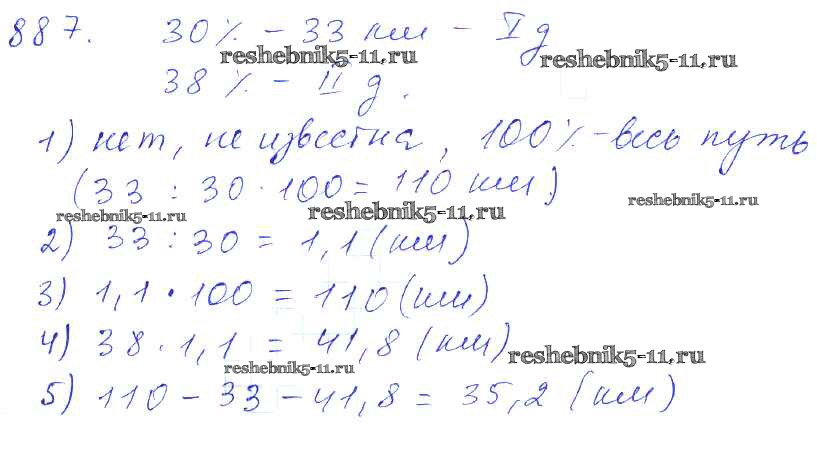 887. 30% - 33 км - I д
reshebnik5-11.ru reshebnik5-11.ru
38% - II д.
1) нет, не известна, 100% - весь путь
(33 : 30 · 100 = 110 км)
reshebnik5-11.ru reshebnik5-11.ru reshebnik5-11.ru
2) 33 : 30 = 1,1 (км)
3) 1,1 · 100 = 110 (км)
4) 38 · 1,1 = 41,8 (км)
reshebnik5-11.ru reshebnik5-11.ru
5) 110 - 33 - 41,8 = 35,2 (км)